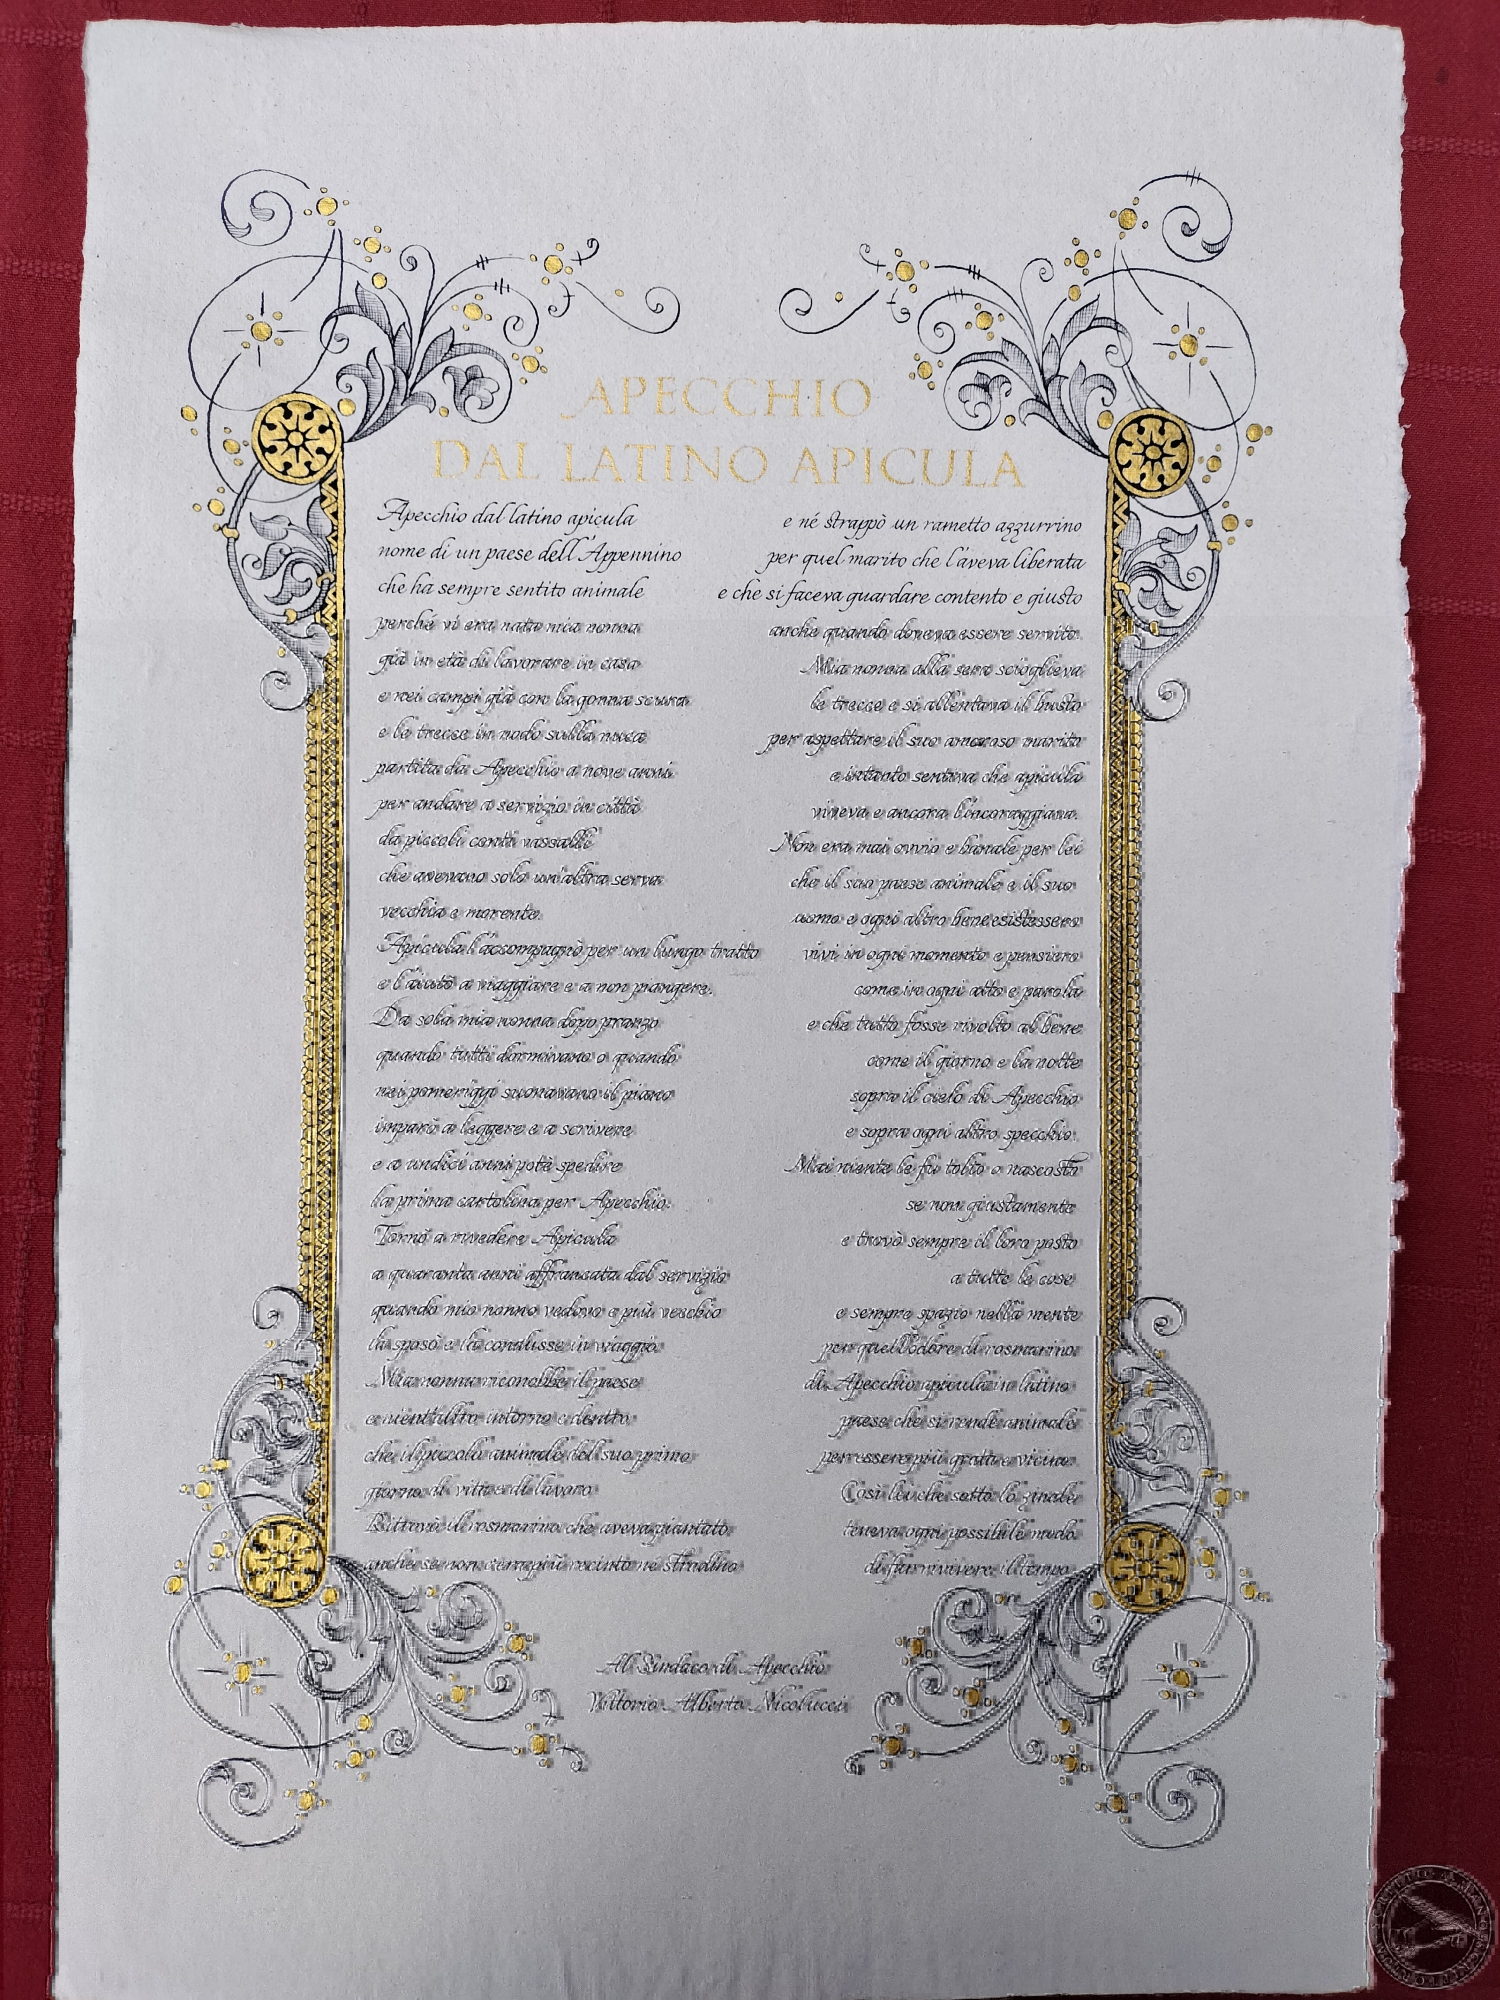 APECCHIO
DAL LATINO APICULA
Apecchio dal latino apicula
nome di un paese dell'Appennino
che ha sempre sentito animale
perché vi era nata mia nonna
già in età di lavorare in casa
e nei campi già con la gonna scura
e le trecce in nodo sulla nuca
partita da Apecchio a nove anni
per andare a servizio in città
da piccoli conti vassalli
che avevano solo un'altra serva
vecchia e morente.
Apicula l'accompagnò per un lungo tratto
e l'aiutò a viaggiare e a non piangere.
Da sola mia nonna dopo pranzo
quando tutti dormivano o quando
nei pomeriggi suonavano il piano
imparò a leggere e a scrivere
e a undici anni potè spedire
la prima cartolina per Apecchio.
Tornò a rivedere Apicula
a quaranta anni affrancata dal servizio
quando mio nonno vedovo e più vecchio
la sposò e la condusse in viaggio.
Mia nonna riconobbe il paese
e nient'altro intorno e dentro
che il piccolo animale del suo primo
giorno di vita e di lavoro.
Ritrovò il rosmarino che aveva piantato
anche se non c'era più recinto né stradino
e né strappò un rametto azzurrino
per quel marito che l'aveva liberata
e che si faceva guardare contento e giusto
anche quando doveva essere servito.
Mia nonna alla sera scioglieva
le trecce e si allentava il busto
per aspettare il suo amoroso marito
e intanto sentiva che apicula
viveva e ancora l'incoraggiava.
Non era mai ovvio e banale per lei
che il suo paese animale e il suo
uomo e ogni altro bene esistessero
vivi in ogni momento e pensiero
come in ogni atto e parola
e che tutto fosse rivolto al bene
come il giorno e la notte
sopra il cielo di Apecchio
e sopra ogni altro specchio.
Mai niente le fu tolto o nascosto
se non giustamente
e trovò sempre il loro posto
a tutte le cose
e sempre spazio nella mente
per quell'odore di rosmarino
di Apecchio apicula in latino
paese che si rende animale
per essere più grato e vicino.
Così lei che sotto lo zinale
teneva ogni possibile modo
di far rivivere il tempo.
Al Sindaco di Apecchio
Vittorio Alberto Nicolucci